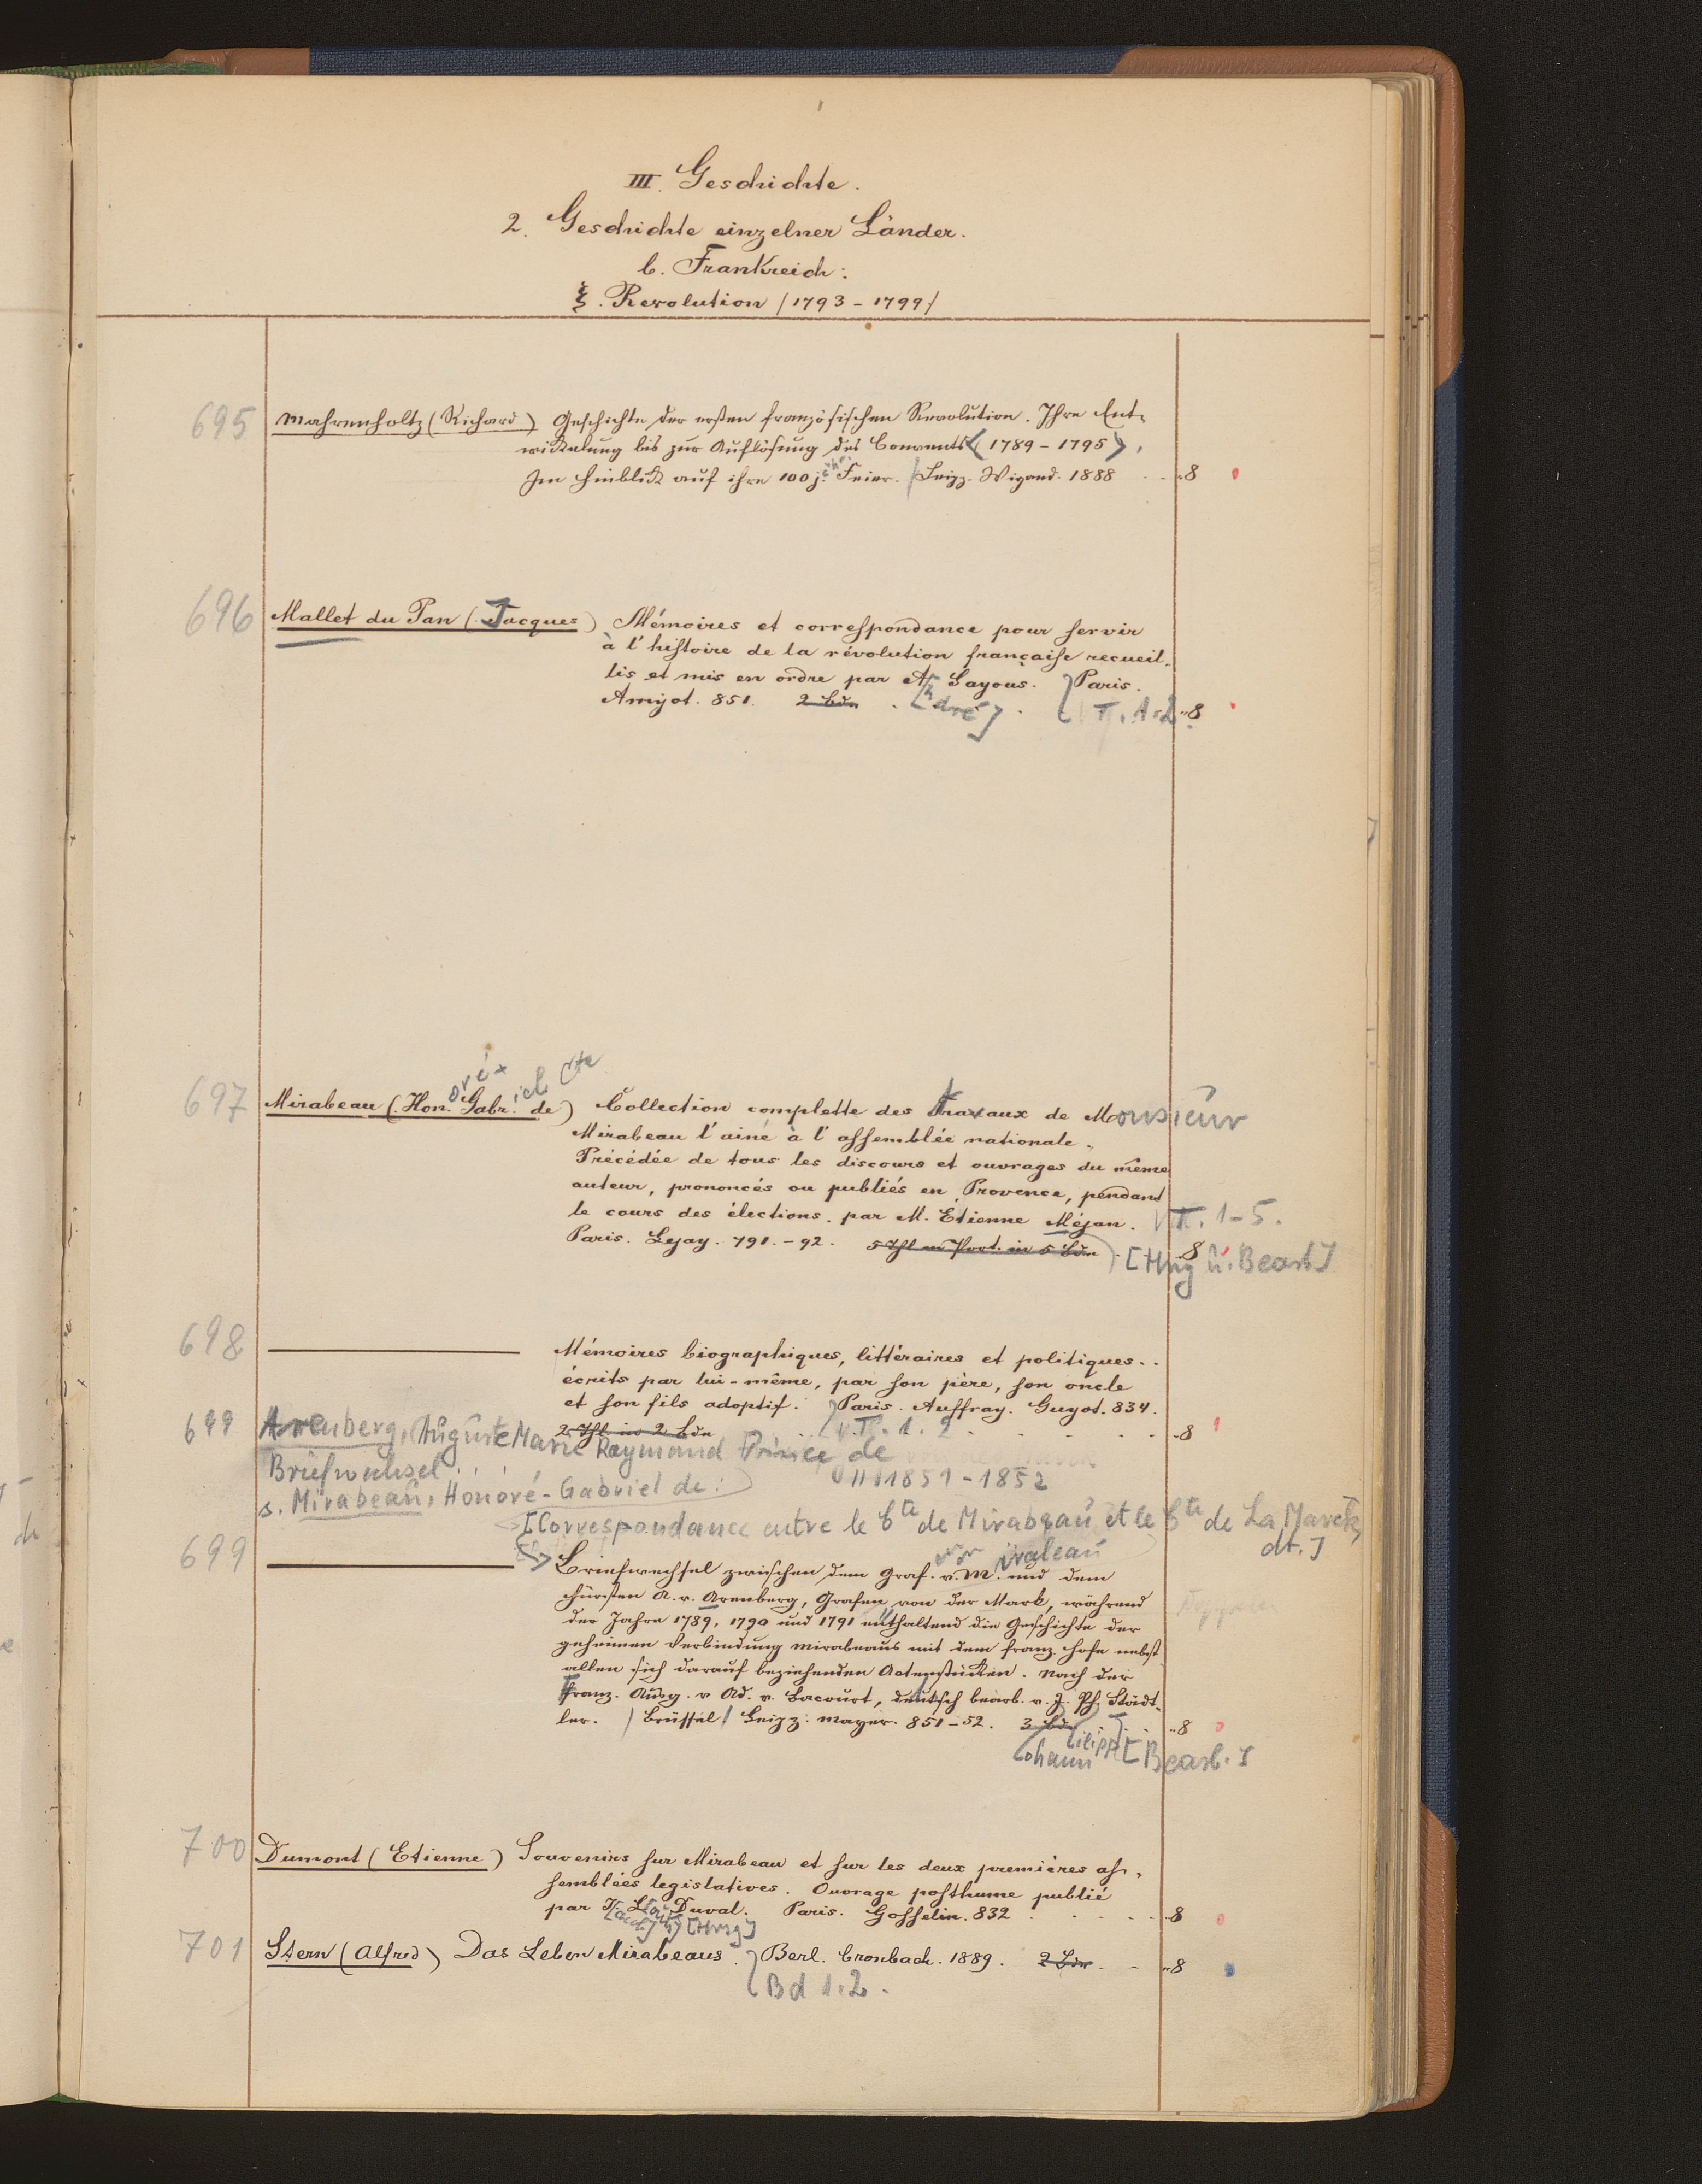 III. Geschichte.
2. Geschichte einzelner Länder.
b. Frankreich:
ξ. Revolution /1793-1799/
695 Mahrenholtz (Richard) Geschichte der ersten französischen Revolution. Ihre Ent-
wickelung bis zur Auflösung des Convents <1789-1795>.
Im Hinblick auf ihre 100j. Feier. Leipz. Wigand. 1888 8
696 Mallet du Pan (Jacques) Mémoires et correspondance pour servir
à l'histoire de la révolution française recueil-
lis et mis en ordre par A. Sayous. Paris.
Amyot. 851. 2 Bde [dré] T. 1.2 8
oré iel Cte
697 Mirabeau (Hon. Gabr. de) Collection complette des travaux de Monsieur
Mirabeau l'ainé à l'assemblée nationale.
Précédée de tous les discours et ouvrages du même
auteur, prononcés ou publiés en Provence, pendant
le cours des élections. par M. Etienne Méjan. T. 1-5.
Paris. Lejay. 791.-92. 5 Thl in 5 Bdn [Hrg u. Bearb] 8
698 Mémoires biographiques, littéraires et politiques..
écrits par lui-même, par son père, son oncle
et son fils adoptif. Paris. Auffray. Guyot. 834.
2 Thl in 2 Bdn T. 1. 2 8
699 Arenberg, Auguste Marie Raymond Prince de
Briefwechsel...
1851-1852
s. Mirabeau, Honoré-Gabriel de:
[Correspondance entre le Cte de Mirabeau et le Cte de La Marck,
dt.]
699 Briefwechsel zwischen dem Graf. v. M. und dem
von irabeau
Fürsten A. v. Arenberg, Grafen von der Mark, während
der Jahre 1789, 1790 und 1791 enthaltend die Geschichte der
geheimen Verbindung Mirabeaus mit dem franz. Hofe nebst
allen sich darauf beziehenden Actenstücken. Nach der
Franz. Ausg. v Ad. v. Bacourt, deutsch bearb. v. J. Ph. Städt-
ler. Brüssel / Leipz. Mayer. 851-52. 3 Bde 8
ohann ilipp [Bearb.]
700 Dumont (Etienne) Souvenirs sur Mirabeau et sur les deux premières as-
semblées legislatives. Ouvrage posthume publié
par J. L. Duval. Paris. Gosselin. 832 8
[Hrsg]
701 Stern (Alfred) Das Leben Mirabeaus. Berl. Cronbach. 1889. 2 Bde 8
Bd 1.2.